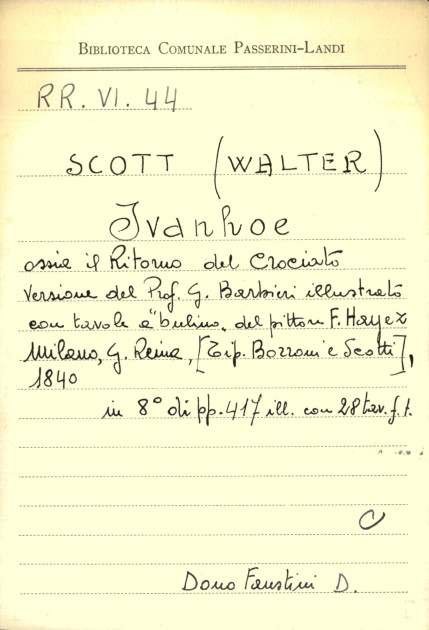 BIBLIOTECA COMUNALE PASSERINI-LANDI
RR. VI. 44
SCOTT (WALTER)
Ivanhoe
ossia il Ritorno del Crociato
versione del Prof. G. Barbieri illustrato
con tavole a "bulino" del pittore F. Hayez
Milano, G. Reina, [Tip. Bozzoni e Scotti],
1840
in 8° di pp. 417 ill. con 28 tav. f. t.
C
Dono Faustini D.